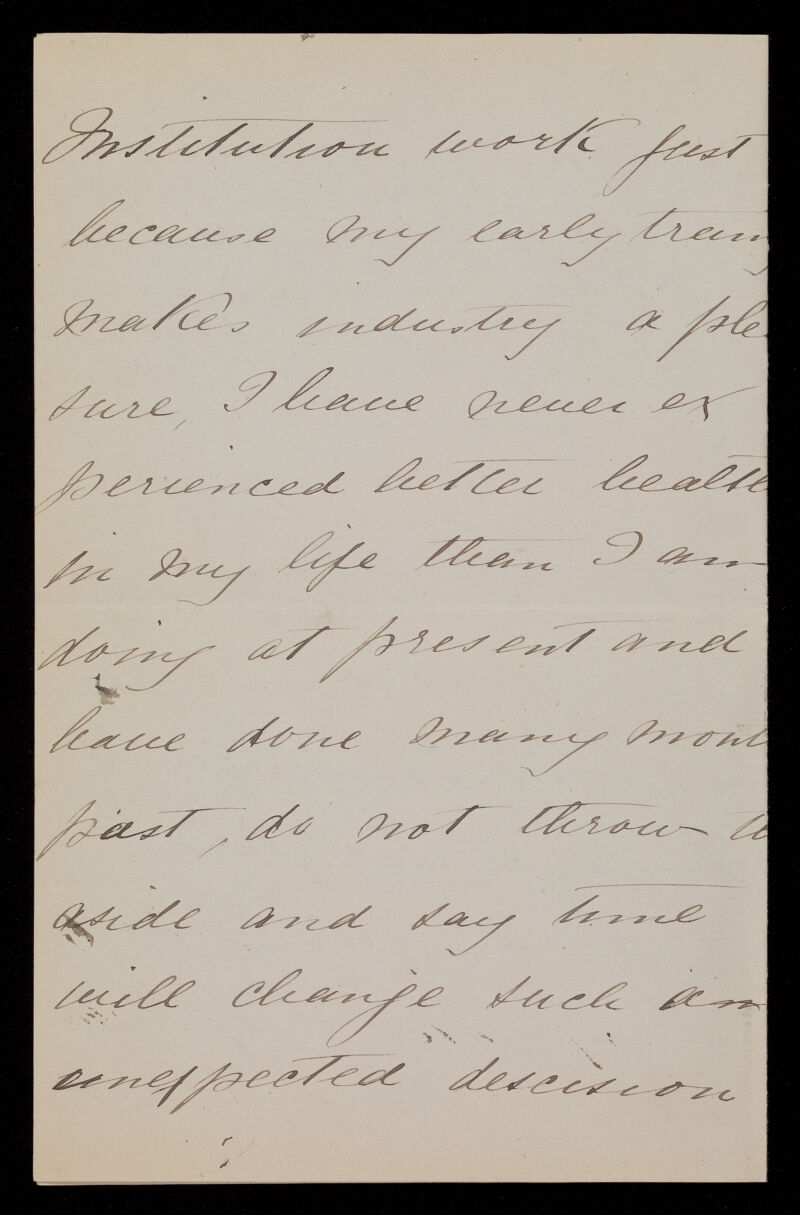 Institution work just
because my early train
makes industry a plea
sure, I have never ex
perienced better health
in my life than I am
doing at present and
have done many mont
past, do not throw
aside and say time
will change such an
unexpected descision